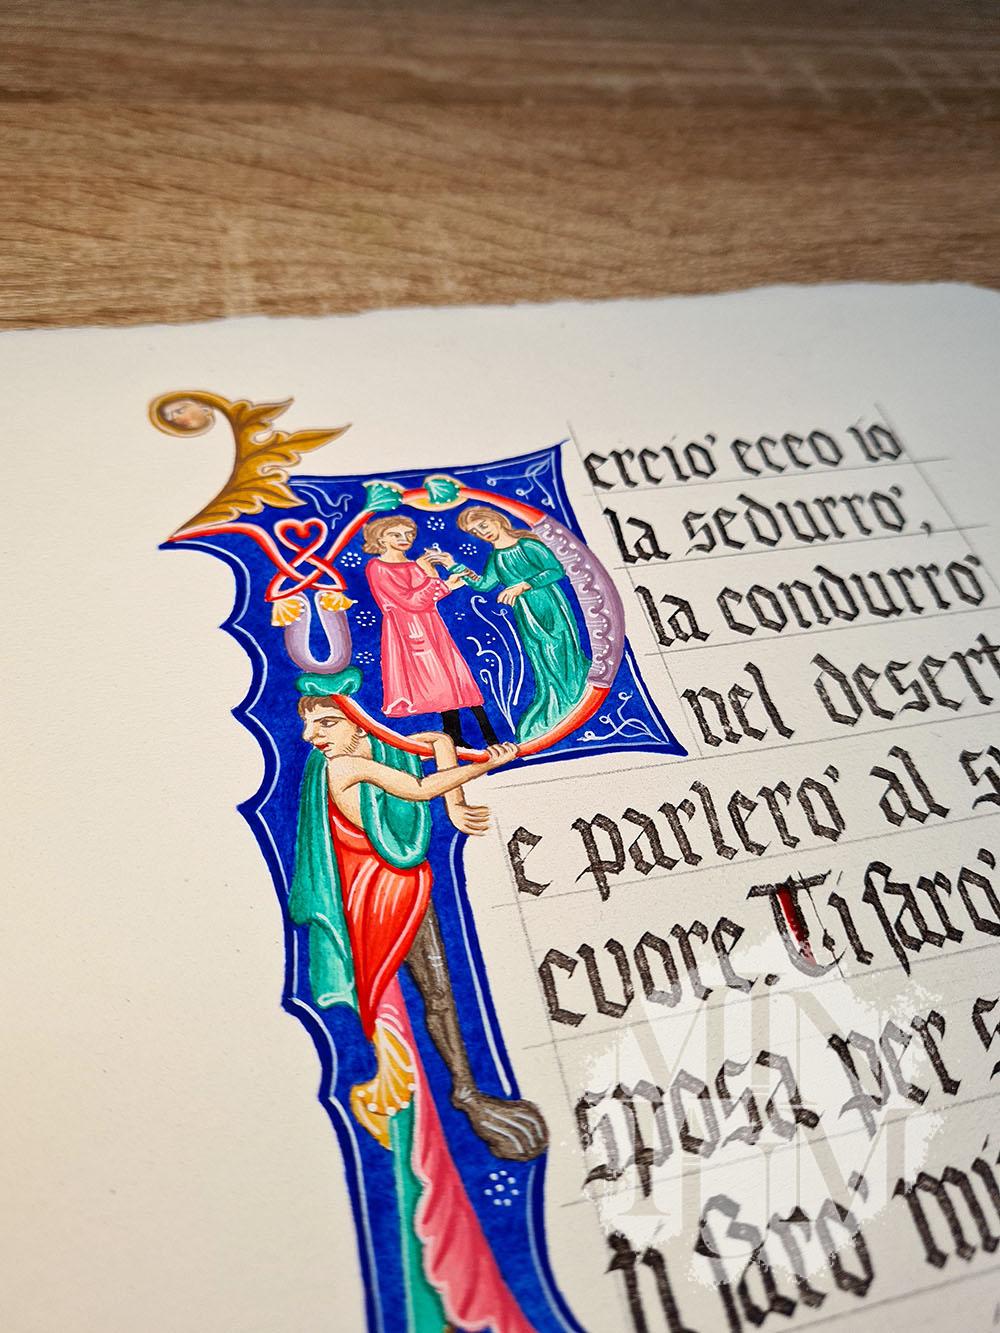 Perciò ecco io
la sedurrò,
la condurrò
nel desert
e parlerò al
cuore. Ti farò
sposa per
ti farò mi
MINIUM